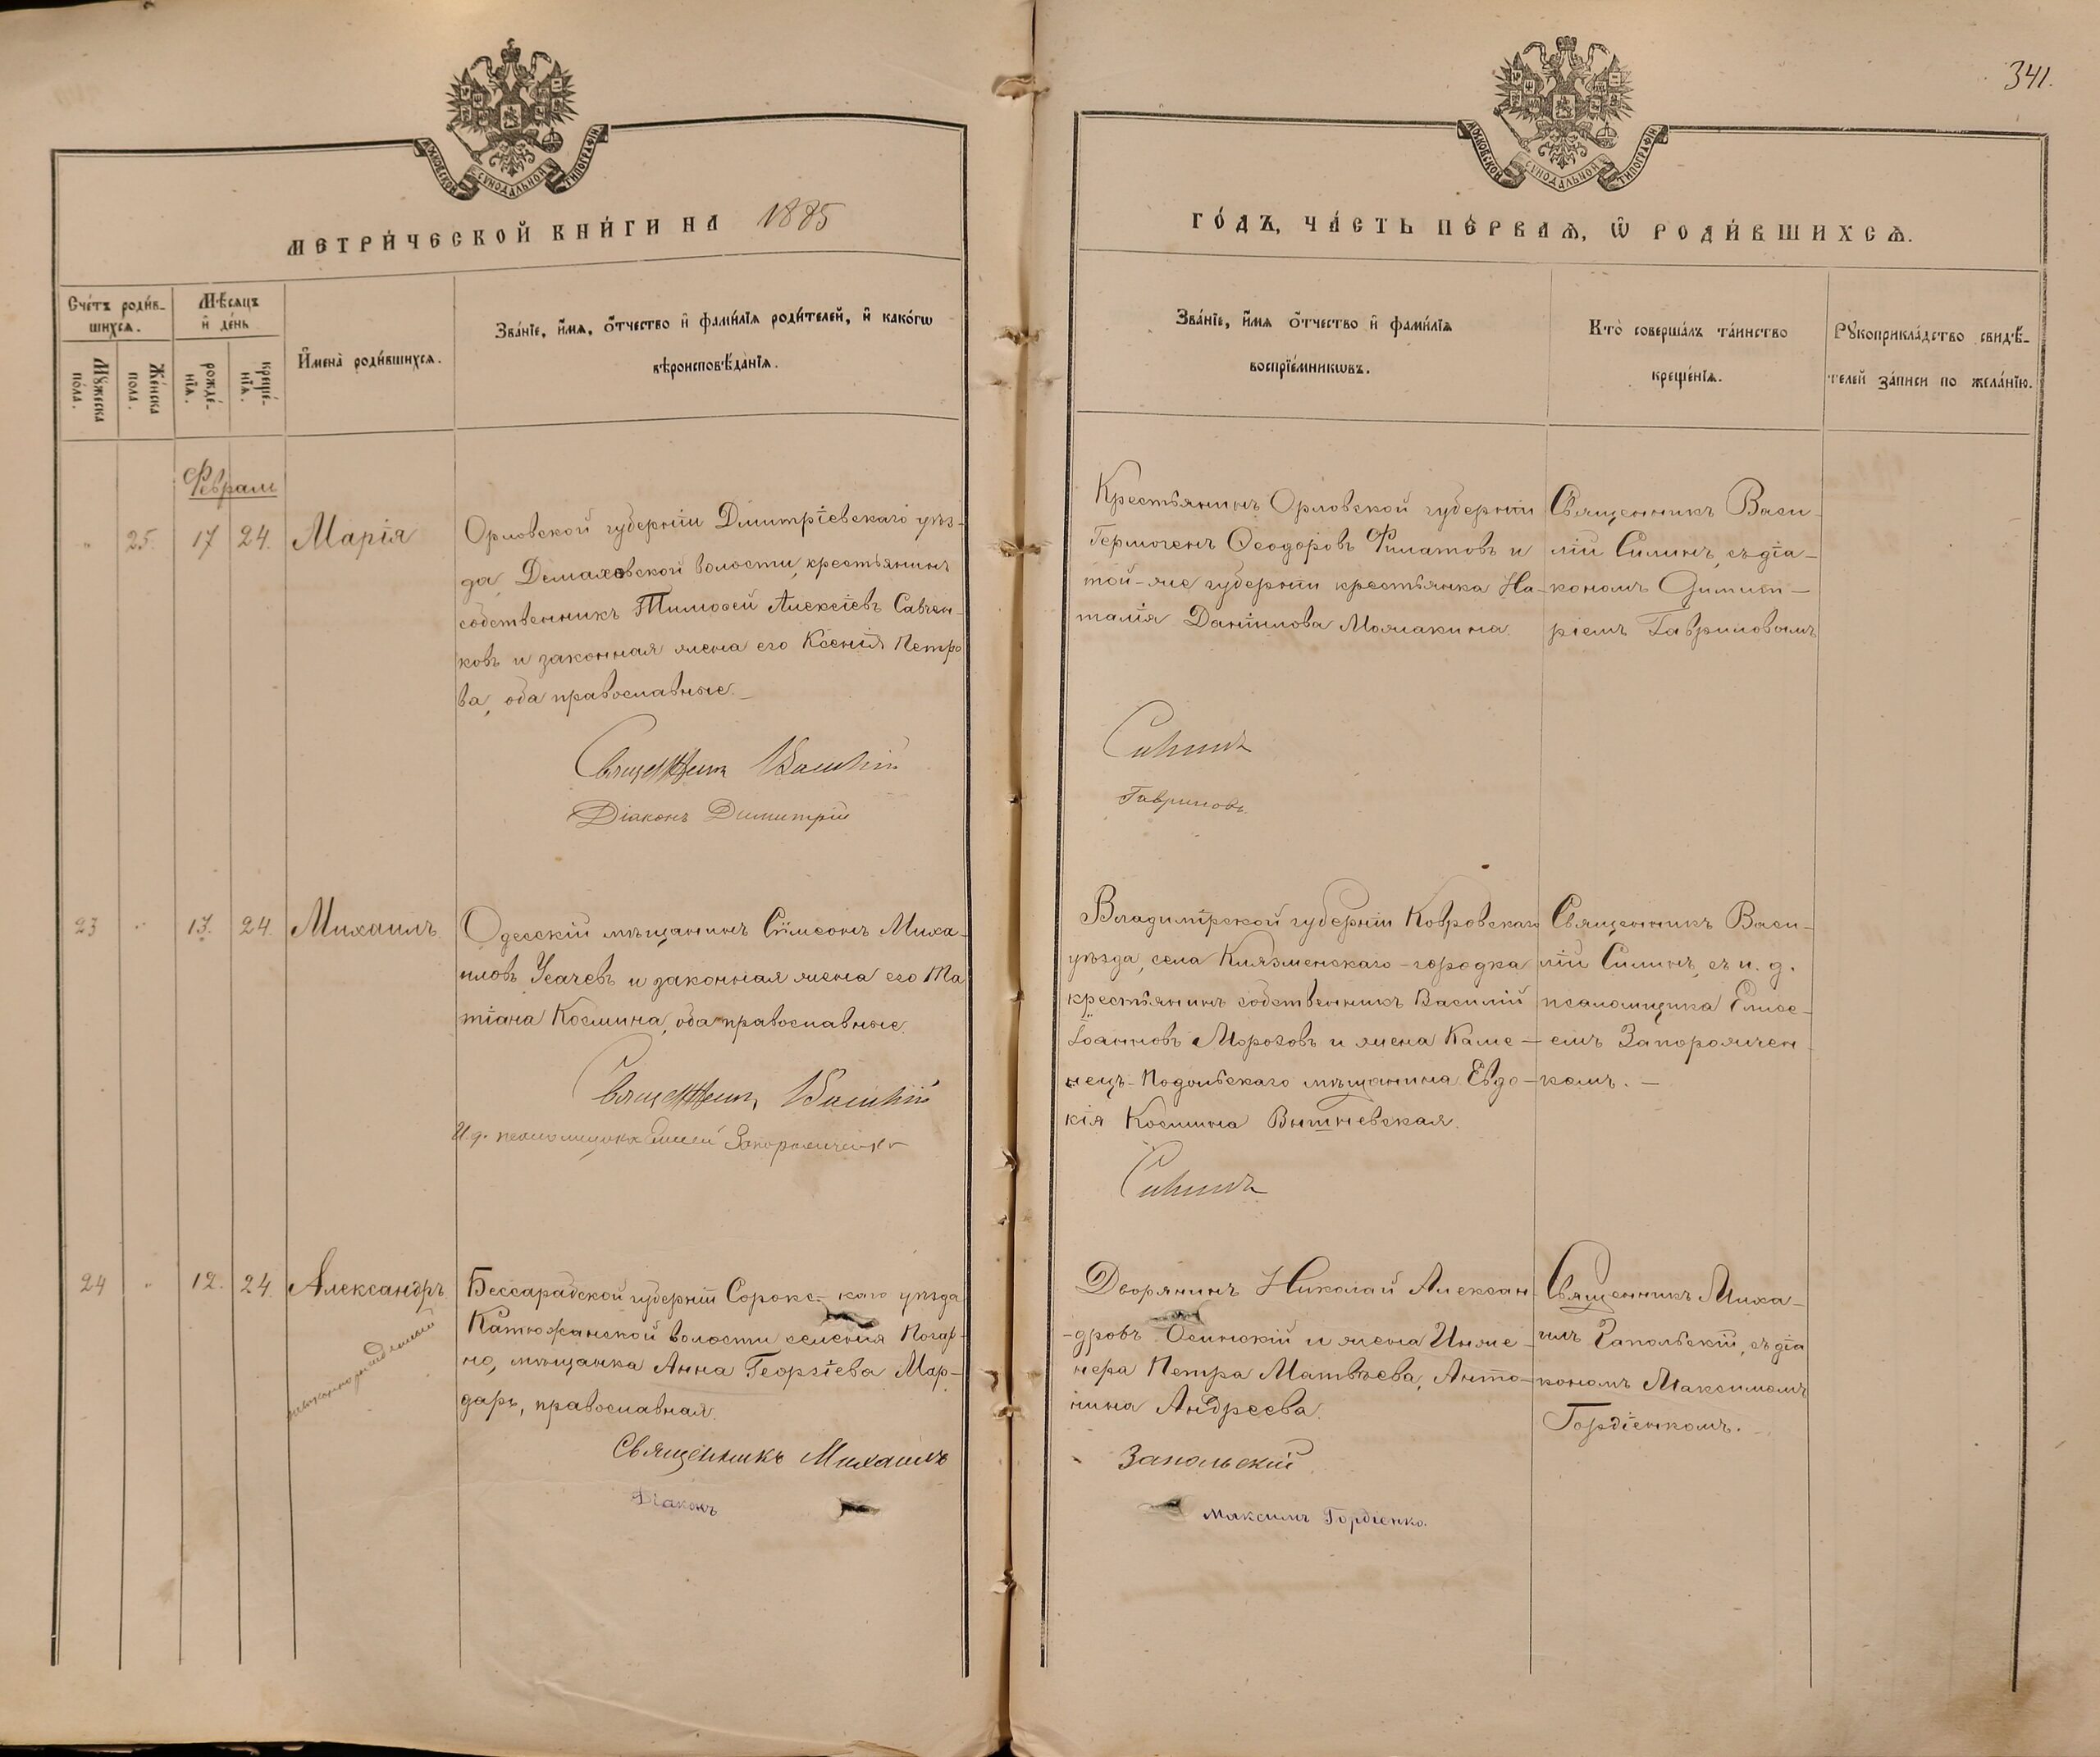 341.
МОСКОВСКОЙ СУНОДАЛЬНОЙ ТИПОГРАФІИ
МОСКОВСКОЙ СУНОДАЛЬНОЙ ТИПОГРАФІИ
МЕТРИ́ЧЕСКОЙ КНИ́ГИ НА 1885
ГО́ДЪ, ЧА́СТЬ ПЕ́РВАѦ, Ѿ РОДИ́ВШИХСѦ.
Сче́тъ роди́в-
шихсѧ.
Мꙋ́жеска
по́ла.
Же́нска
пола.
Мѣ́сѧцъ
и҆ де́нь
рожде́-
нїѧ.
креще́-
нїѧ.
И҆мена̀ роди́вшихсѧ.
Зва́нїе, и҆́мѧ, ѻ҆́тчество и҆ фамі́лїѧ роди́телей, и҆ како́гѡ
вѣроисповѣ́данїѧ.
Зва́нїе, и҆́мѧ ѻ҆́тчество и҆ фамі́лїѧ
воспрїе́мникѡвъ.
Кто̀ соверша́лъ та́инство
креще́нїѧ.
Рꙋкоприкла́дство свидѣ́-
телей за́писи по жела́нїю.
Февраль
" 25. 17 24. Марія
Орловской губерніи Дмитріевскаго уѣз-
да, Демаховской волости, крестьянинъ
собственникъ Тимоѳей Алексіевъ Савчен-
ковъ и законная жена его Ксенія Петро
ва, оба православные.
Священникъ Василій
Діаконъ Димитрій
Крестьянинъ Орловской губерніи
Гермогенъ Ѳеодоровъ Филатовъ и
той-же губерніи крестьянка На-
талія Даніилова Можакина.
Силинъ
Гавриловъ.
Священникъ Васи-
лій Силинъ, съ діа-
кономъ Димит-
ріемъ Гавриловымъ
23 " 13. 24. Михаилъ.
Одесскій мѣщанинъ Сѵмеонъ Миха-
иловъ Усачевъ и законная жена его Та
тіана Космина, оба православные.
Священникъ Василій
И. д. псаломщика Елисей Запорожченко
Владимірской губерніи Ковровскаго
уѣзда, села Клязменскаго-городка
крестьянинъ собственникъ Василій
Іоанновъ Морозовъ и жена Каме-
нецъ-Подольскаго мѣщанина Евдо-
кія Космина Витневская.
Силинъ
Священникъ Васи-
лій Силинъ, съ и. д.
псаломщика Елисе-
емъ Запорожчен
комъ.
24 " 12. 24. Александръ
незаконнорожденный
Бессарабской губерніи Сорокс- каго уѣзда
Катюжанской волости селенія Погар-
но, мѣщанка Анна Георгіева Мар-
дарь, православная.
Священникъ Михаилъ
Діаконъ
Дворянинъ Николай Алексан-
-дровъ Осинскій и жена Инже-
нера Петра Матвѣева, Анто-
нина Андреева.
Запольскій
Максимъ Гордіенко.
Священникъ Миха-
илъ Запольскій, съ діа
кономъ Максимомъ
Гордіенкомъ.